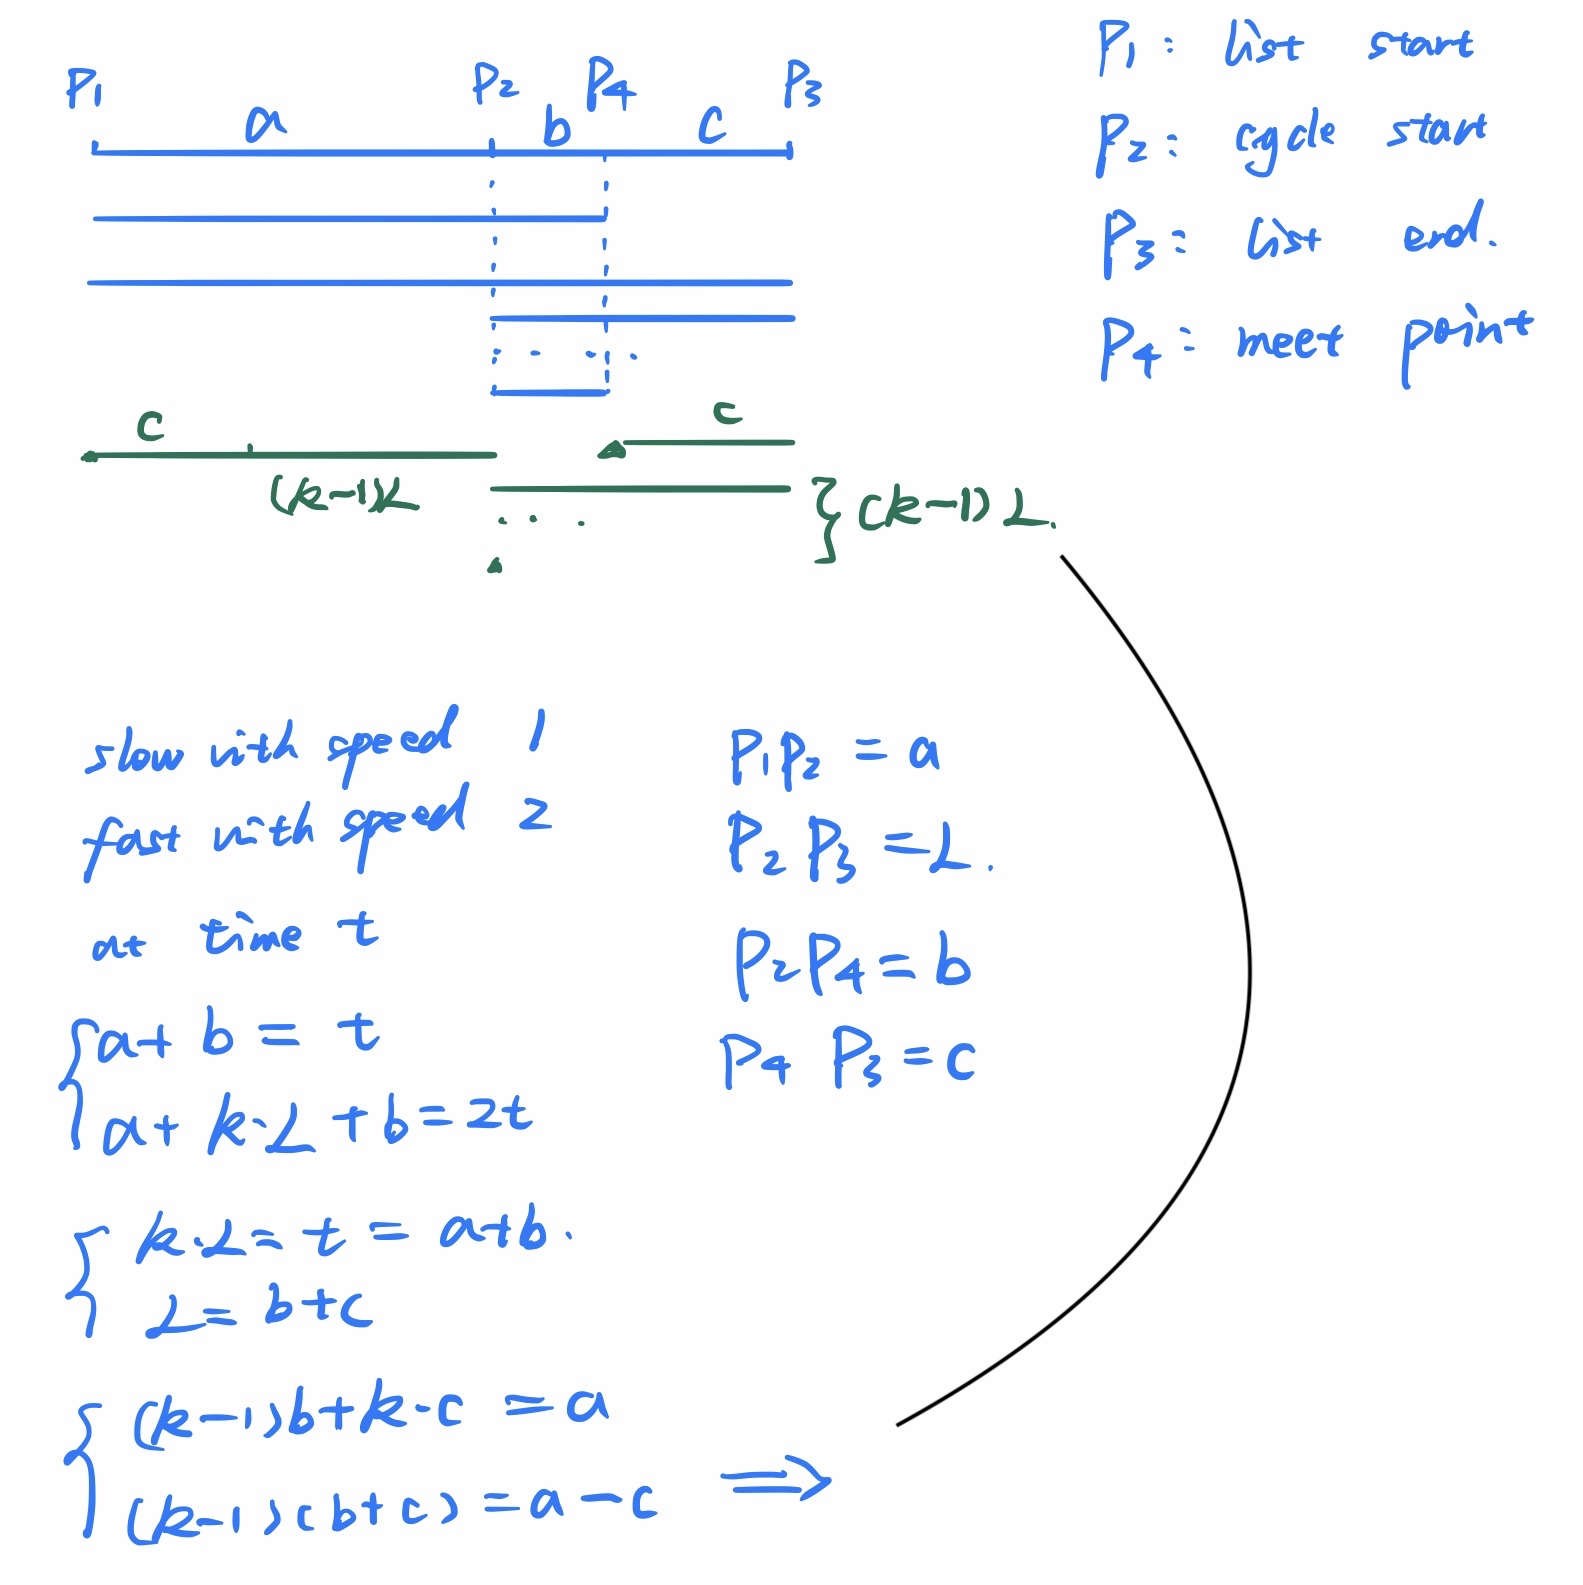 P1 P2 P4 P3
a b c
P1 : list start
P2 : cycle start
P3 : list end.
P4 : meet point
c c
(k-1)L
. . . } (k-1) L.
slow with speed 1
fast with speed 2
at time t
{ a + b = t
a + k·L + b = 2t
{ k·L = t = a+b.
L = b+c
{ (k-1)b + k·c = a
(k-1)(b+c) = a - c ⇒
P1P2 = a
P2 P3 = L.
P2P4 = b
P4 P3 = c